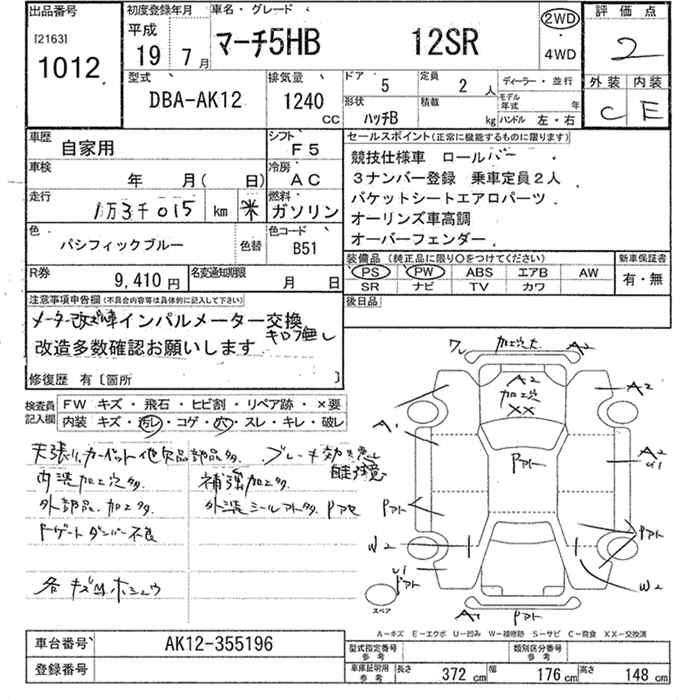 出品番号 初度登録年月 車名・グレード 2WD 評価点
[2163] 平成
1012 19年 7月 マーチ5HB 12SR ・ 4WD 2
型式 排気量 ドア 5 定員 2人 ディーラー・並行 外装 内装
DBA-AK12 1240cc 形状 ハッチB 積載 kg モデル年式 年 C E
ハンドル 左・右
車歴 自家用 シフト F5 セールスポイント(正常に機能するものに限ります)
車検 年 月(日) 冷房 AC 競技仕様車 ロールバー
3ナンバー登録 乗車定員2人
走行 1万3千015 km 米 燃料 ガソリン バケットシートエアロパーツ
オーリンズ車高調
色 パシフィックブルー 色替 色コード B51 オーバーフェンダー
装備品(純正品に限り○をつけてください) 新車保証書
R券 9,410円 名変通知期限 月 日 PS PW ABS エアB AW 有・無
SR ナビ TV カワ
注意事項申告欄(不具合内容等は具体的に記入して下さい) 後日品
メーター改ざ車インパルメーター交換
キロ不無し
改造多数確認お願いします
修復歴 有〔箇所 〕
検査員記入欄 FW キズ・飛石・ヒビ割・リペア跡・×要
内装 キズ・汚レ・コゲ・穴・スレ・キレ・破レ
天張リ、カーペット他欠品部品多 ブレーキ効き悪し
内装加工穴多 補強加工多
外部品、加工多 外装シールアト多
Fゲートダンパー不良
各キズ凹ホシュウ
ワレ 加工穴大 A2
A2 加工穴 XX
A2
A1
Pアト
A2
U1
Pアト
Pアト
W2
W2
U1
Pアト
スペア
A1 Pアト
A-キズ E-エクボ U-凹み W-補修跡 S-サビ C-腐食 XX-交換済
車台番号 AK12-355196 型式指定番号 参考 類別区分番号 参考
登録番号 車庫証明用 参考 長さ 372cm 幅 176cm 高さ 148cm